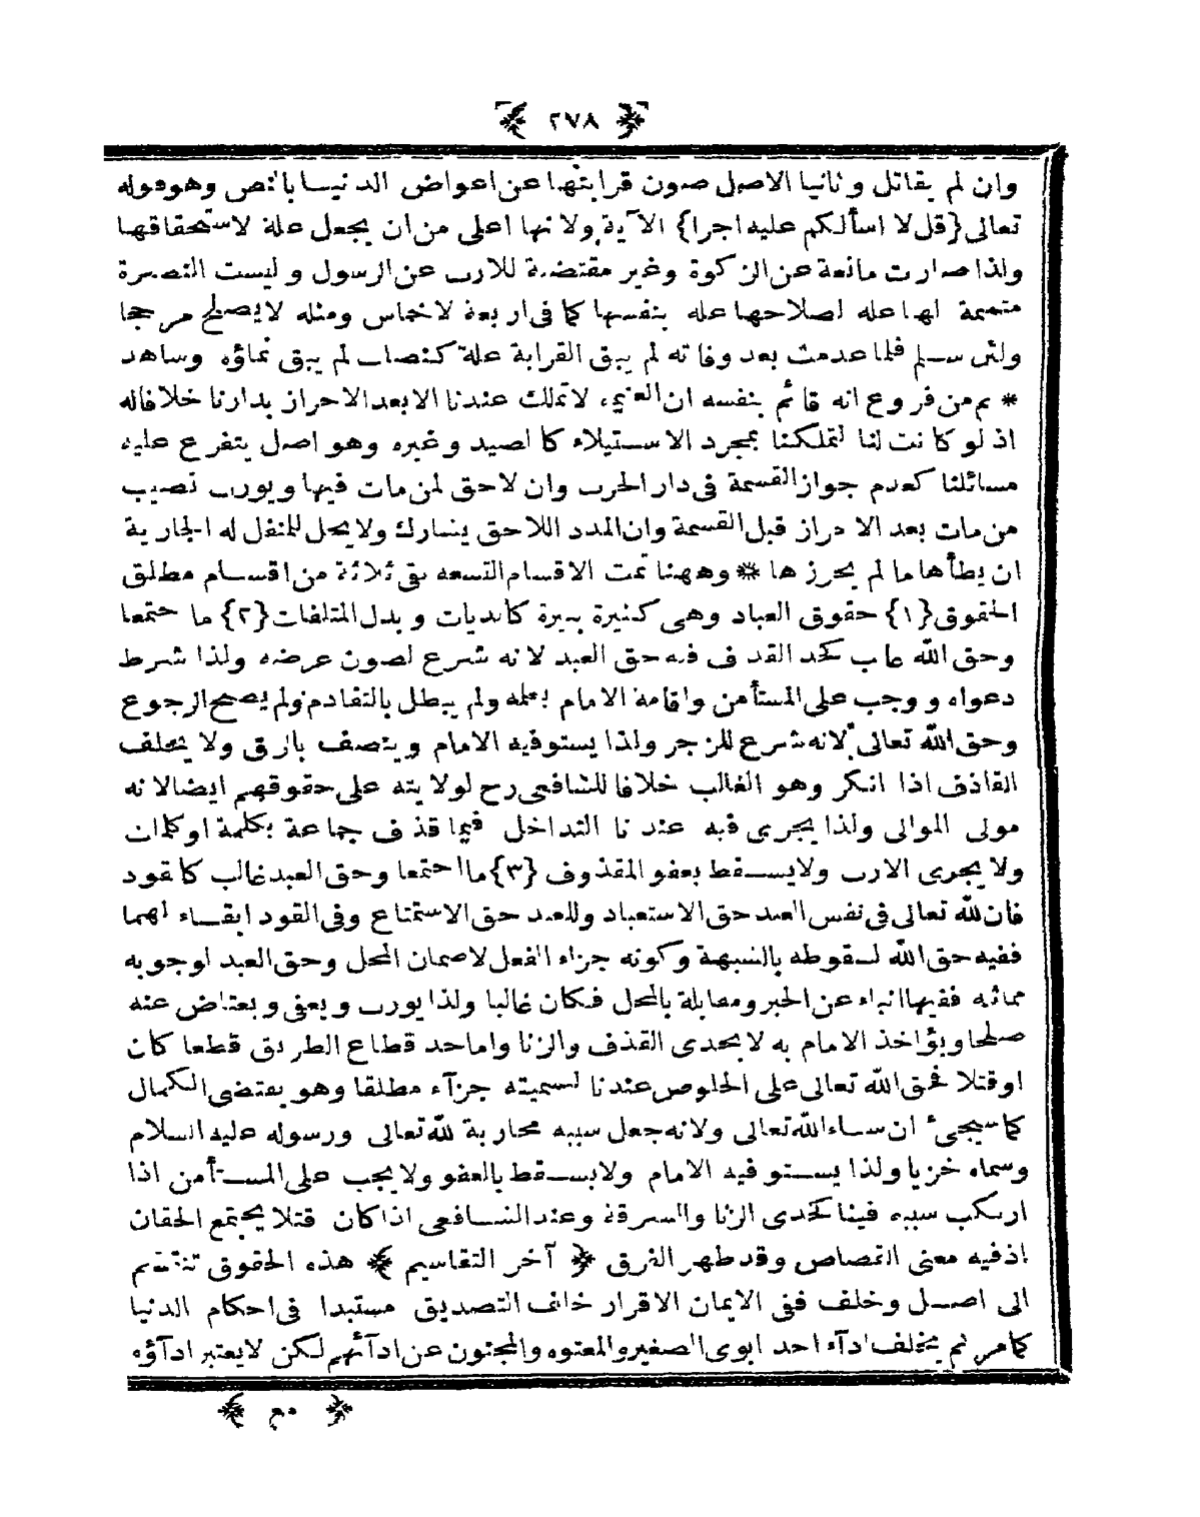 ﴿ ٢٧٨ ﴾
وان لم يقاتل وثانيا الاصل صون قرابتها عن اعواض الدنيا بالنص وهو قوله
تعالى {قل لا اسألكم عليه اجرا} الآية ولانها اعلى من ان يجعل علة لاستحقاقها
ولذا صارت مانعة عن الزكوة وغير مقتضية للارث عن الرسول وليست النصرة
متممة لها علة لصلاحها علة بنفسها كما فى اربعة الاخماس ومثله لا يصلح مرجحا
ولئن سلم فلما عدمت بعد وفاته لم يبق القرابة علة كنصاب لم يبق نماؤه وساهد
* ثم من فروع انه قائم بنفسه ان الغنيمة لا تملك عندنا الا بعد الاحراز بدارنا خلافا له
اذ لو كانت لنا لتملكنا بمجرد الاستيلاء كالصيد وغيره وهو اصل يتفرع عليه
مسائلنا كعدم جواز القسمة فى دار الحرب وان لا حق لمن مات فيها ويورث نصيب
من مات بعد الاحراز قبل القسمة وان المدد اللاحق يشارك ولا يحل للمنفل له الجارية
ان يطأها ما لم يحرزها * وههنا تمت الاقسام التسعه بقى ثلاثة من اقسام مطلق
الحقوق {١} حقوق العباد وهى كثيرة كالديات وبدل المتلفات {٢} ما اجتمعا
وحق الله غالب كحد القذف فيه حق العبد لانه شرع لصون عرضه ولذا شرط
دعواه ووجب على المستأمن واقامة الامام بعلمه ولم يبطل بالتقادم ولم يصح الرجوع
وحق الله تعالى لانه شرع للزجر ولذا يستوفيه الامام ويتصف بالرق ولا يحلف
القاذف اذا انكر وهو الغالب خلافا للشافعى رح لولايته على حقوقهم ايضا لانه
مولى الموالى ولذا يجرى فيه عندنا التداخل فيما قذف جماعة بكلمة او كلمات
ولا يجرى الارث ولا يسقط بعفو المقذوف {٣} ما اجتمعا وحق العبد غالب كالقود
فان لله تعالى فى نفس العبد حق الاستعباد وللعبد حق الاستمتاع وفى القود ابقاء لهما
ففيه حق الله لسقوطه بالشبهة وكونه جزاء الفعل لا ضمان المحل وحق العبد لوجوبه
مماثله ففيها انباء عن الجبر ومقابلة بالمحل فكان غالبا ولذا يورث ويعفى ويعتاض عنه
صلحا ويؤاخذ الامام به لا بحدى القذف والزنا واما حد قطاع الطريق قطعا كان
او قتلا فحق الله تعالى على الخلوص عندنا لتسميته جزآء مطلقا وهو يقتضى الكمال
كما سيجىء ان شاء الله تعالى ولانه جعل سببه محاربة لله تعالى ورسوله عليه السلام
وسماه خزيا ولذا يستوفيه الامام ولا يسقط بالعفو ولا يجب على المستأمن اذا
ارتكب سببه فينا كحدى الزنا والسرقة وعند الشافعى اذا كان قتلا يجتمع الحقان
اذ فيه معنى القصاص وقد ظهر الفرق ﴿ آخر التقاسيم ﴾ هذه الحقوق تنقسم
الى اصل وخلف ففى الايمان الاقرار خلف التصديق مستبدا فى احكام الدنيا
كما مر ثم يخلف ادآء احد ابوى الصغير والمعتوه والمجنون عن ادآئهم لكن لا يعتبر ادآؤه
﴿ مع ﴾